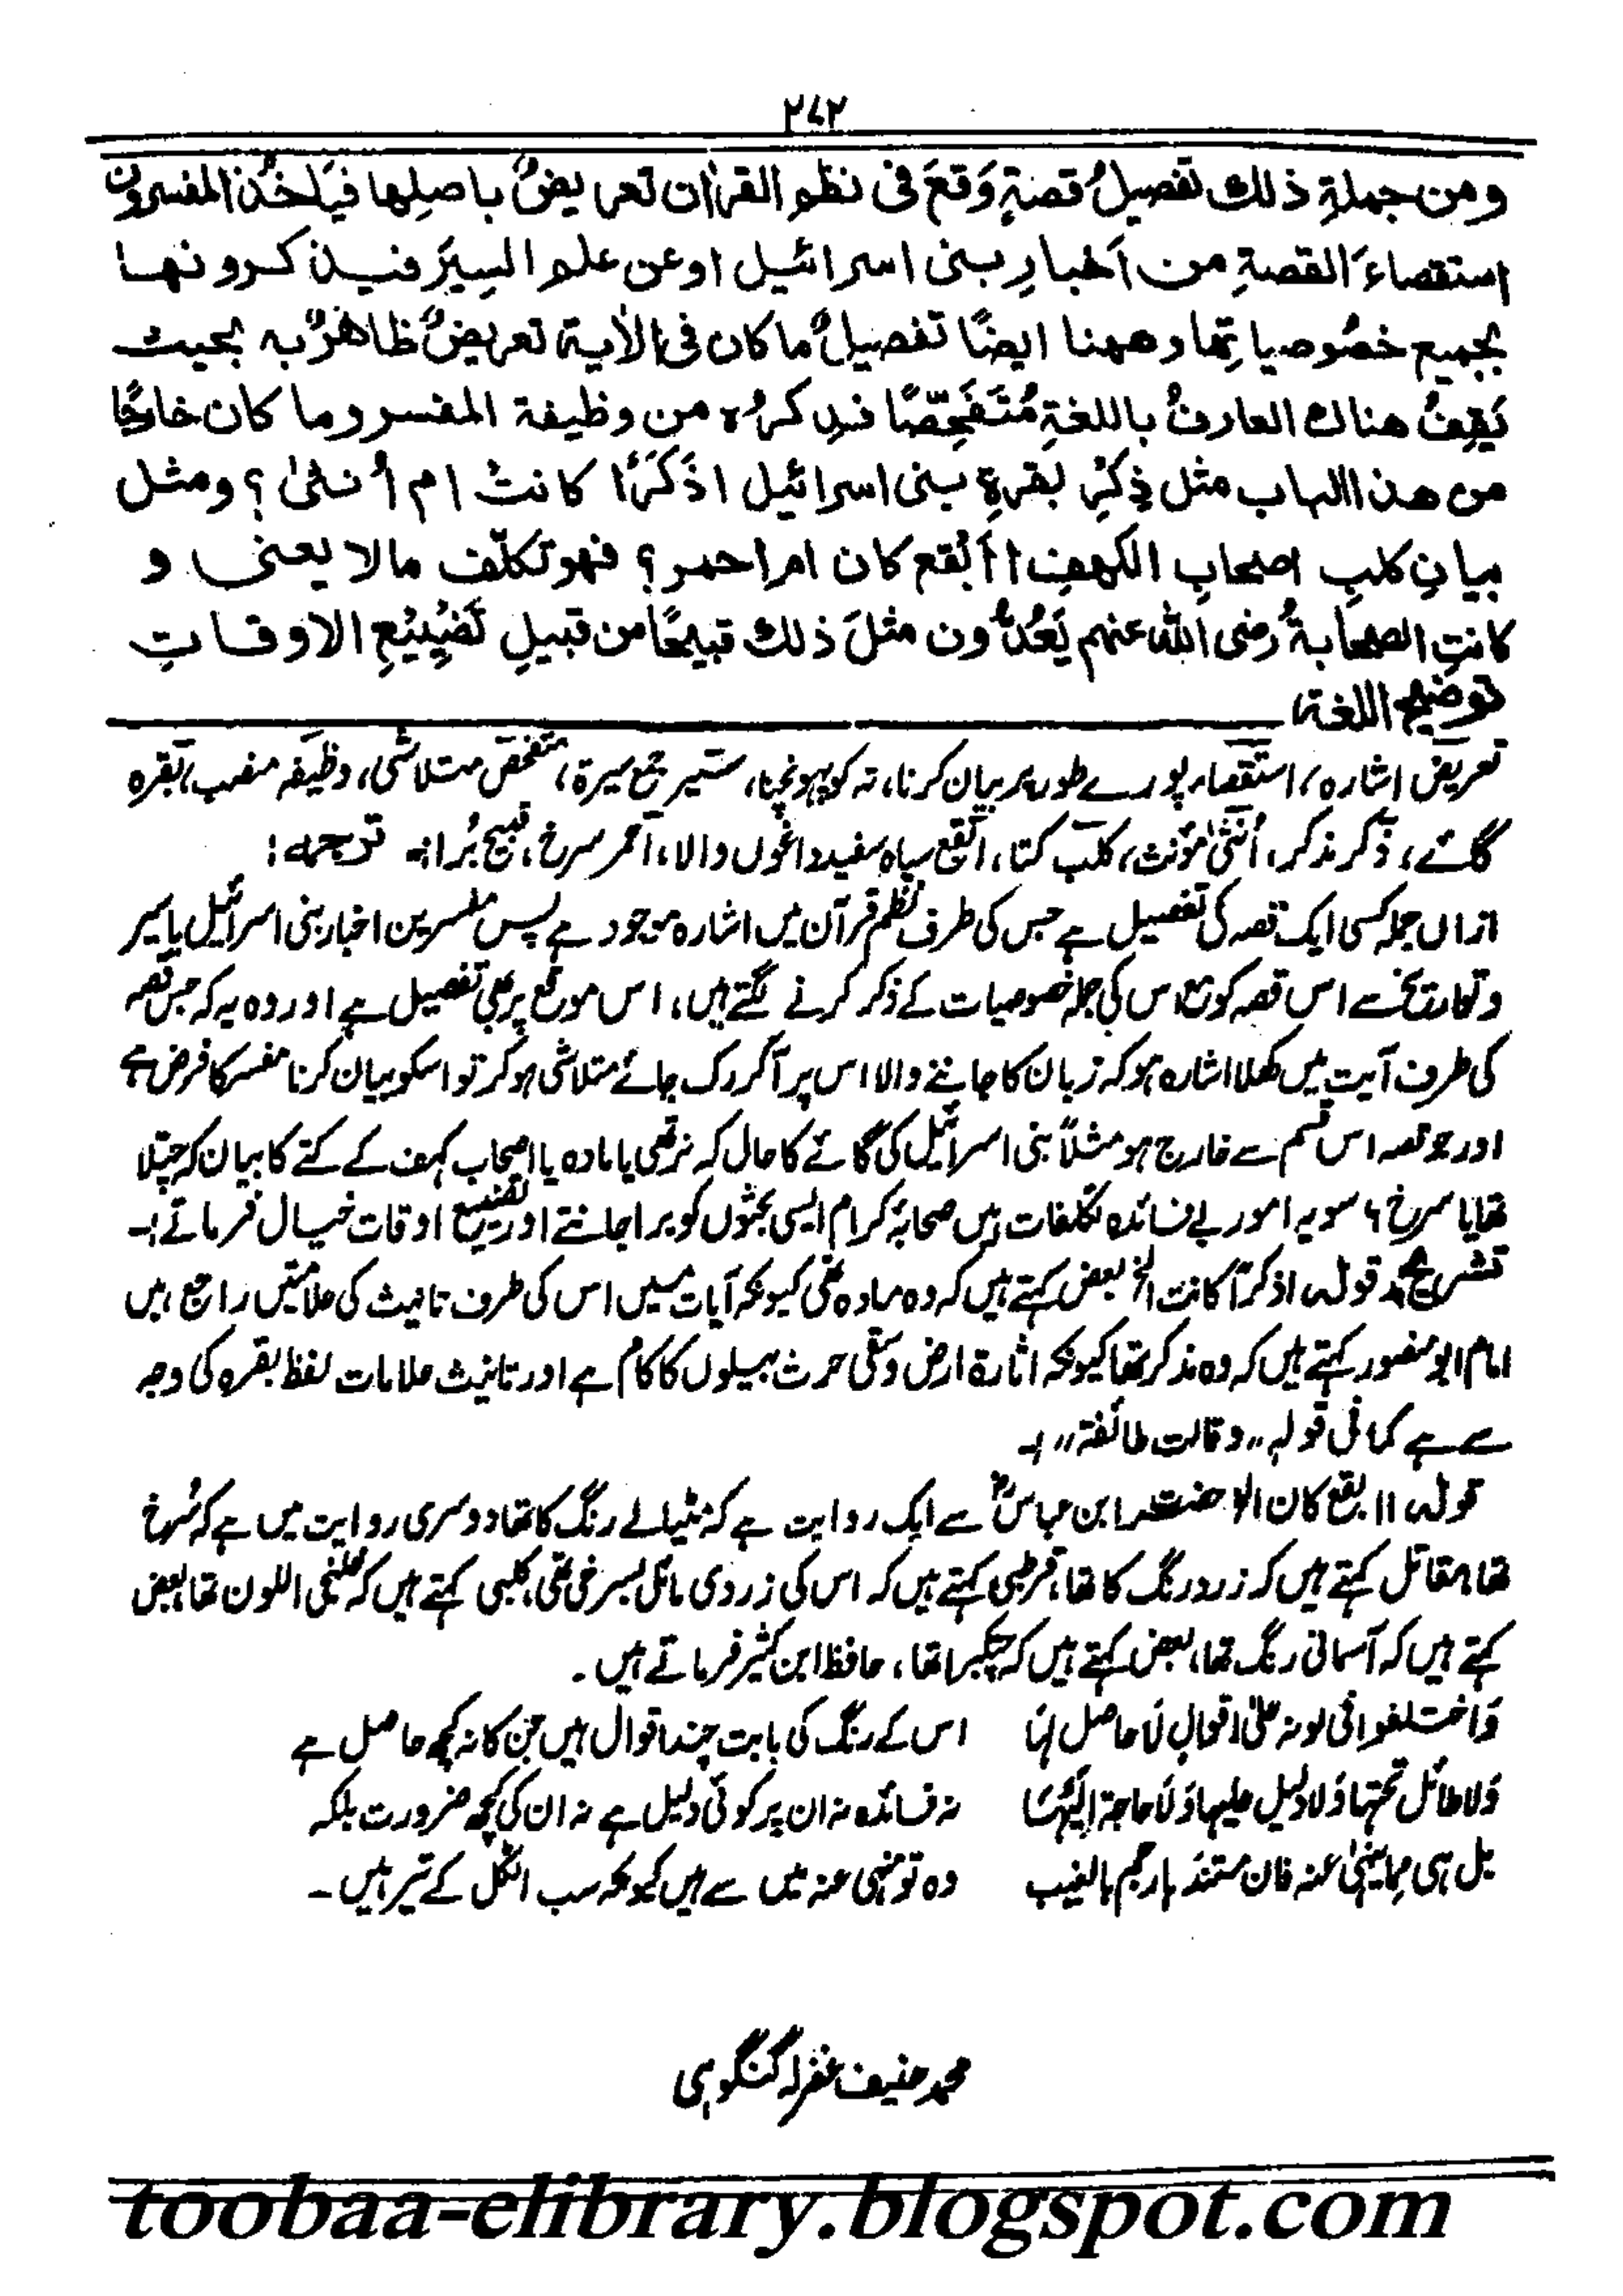 ۲۷۲
ومن جملةِ ذلك تفصیلُ قصةٍ وَقعَ فی نظم القراٰن تعریضٌ باصلِها فیَاخذُ المفسرون
استقصاءَ القصةِ من اَخبارِ بنی اسرائیل اوعن علم السِیَر فیذکرونها
بجمیع خصُوصیاتِها وههنا ایضًا تفصیلٌ ماکان فی الاٰیة تعریضٌ ظاهرٌ به بحیث
یَقِفُ هناك العارفُ باللغةِ مُتَفَحِّصًا فذکرُه من وظیفة المفسر وما کان خارجًا
من هذا الباب مثل ذِکرِ بقرةِ بنی اسرائیل اذَکَرًا کانت ام اُنثیٰ؟ ومثل
بیانِ کلبِ اصحابِ الکهفِ أأبْقع کان ام احمر؟ فهو تکلّف مالا یعنی و
کانتِ الصحابةُ رضی الله عنهم یَعُدُّون مثلَ ذلك قبیحًا من قبیلِ تَضْیِیْعِ الاوقاتِ
توضیح اللغة،
تعریض اشارہ، استقصاء پورے طور پر بیان کرنا، تہ کو پہونچنا، سیر جمع سیرۃ، متفحص متلاشی، وظیفہ منصب، بقرہ
گائے، ذکر مذکر، اُنثیٰ مؤنث، کلب کتا، ابقع سیاہ سفید داغوں والا، احمر سرخ، قبیح بُرا:۔ ترجمہ:
ازاں جملہ کسی ایک قصہ کی تفصیل ہے جس کی طرف نظم قرآن میں اشارہ موجود ہے پس مفسرین اخبار بنی اسرائیل یا سیر
وتواریخ سے اس قصہ کو مع اس کی جملہ خصوصیات کے ذکر کرنے لگتے ہیں، اس موقع پر بھی تفصیل ہے اور وہ یہ کہ جس قصہ
کی طرف آیت میں کھلا اشارہ ہو کہ زبان کا جاننے والا اس پر آکر رک جائے متلاشی ہو کر تو اسکو بیان کرنا مفسر کا فرض ہے
اور جو قصہ اس قسم سے خارج ہو مثلاً بنی اسرائیل کی گائے کا حال کہ نر تھی یا مادہ یا اصحاب کہف کے کتے کا بیان کہ چتلا
تھا یا سرخ، سو یہ امور بے فائدہ تکلفات ہیں صحابۂ کرام ایسی بحثوں کو برا جانتے اور تضییع اوقات خیال فرماتے:۔
تشریح: قولہ اذکرًا کانت الخ بعض کہتے ہیں کہ وہ مادہ تھی کیونکہ آیات میں اس کی طرف تانیث کی علامتیں راجع ہیں
امام ابو منصور کہتے ہیں کہ وہ مذکر تھا کیونکہ اثارۃ ارض وسقی حرث بیلوں کا کام ہے اور تانیث علامات لفظ بقرہ کی وجہ
سے ہے کما فی قولہ ،،وقالت طائفة،،:۔
قولہ أ ابقع کان الخ حضرت ابن عباسؓ سے ایک روایت ہے کہ مٹیالے رنگ کا تھا دوسری روایت میں ہے کہ سُرخ
تھا، مقاتل کہتے ہیں کہ زرد رنگ کا تھا، قرطبی کہتے ہیں کہ اس کی زردی مائل بسرخی تھی، کلبی کہتے ہیں کہ خلنجی اللون تھا، بعض
کہتے ہیں کہ آسمانی رنگ تھا، بعض کہتے ہیں کہ چتکبرا تھا، حافظ ابن کثیر فرماتے ہیں۔
وَاختلفوا فی لونہ علیٰ اقوالٍ لَا حاصل لہَا اس کے رنگ کی بابت چند اقوال ہیں جن کا نہ کچھ حاصل ہے
وَلا طائل تحتہا وَلا دلیل علیہا وَلَا حاجۃ اِلَیْہَا نہ فائدہ نہ ان پر کوئی دلیل ہے نہ ان کی کچھ ضرورت بلکہ
بل ہی مما ینہیٰ عنہ فان مستندہا رجم بالغیب وہ تو منہی عنہ میں سے ہیں کیونکہ سب اٹکل کے تیر ہیں۔
محمد حنیف غفرلہ گنگوہی
toobaa-elibrary.blogspot.com